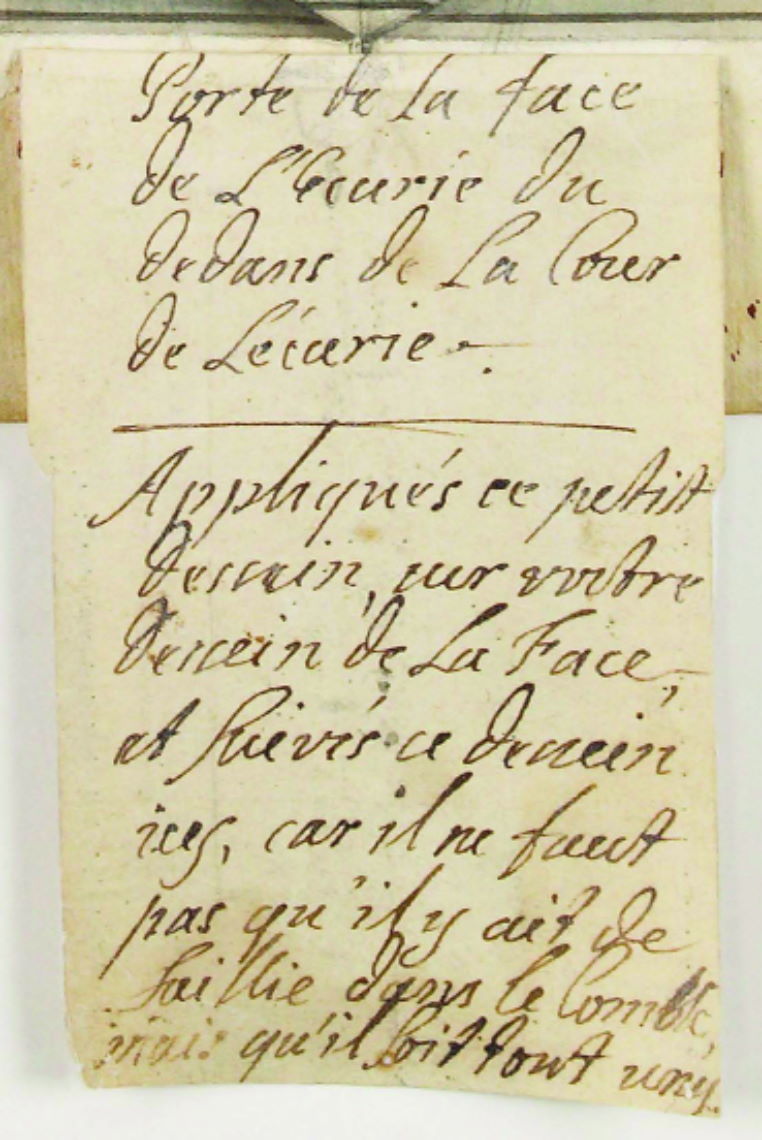 Porte de La face
de L'Ecurie du
dedans de La Cour
de Lécurie.
Appliqués ce petit
dessein, sur vostre
dessein de La Face,
et suivés ce dessein
icy, car il ne faut
pas qu'il y ait de
saillie dans le Comble,
mais qu'il soit tout uny.